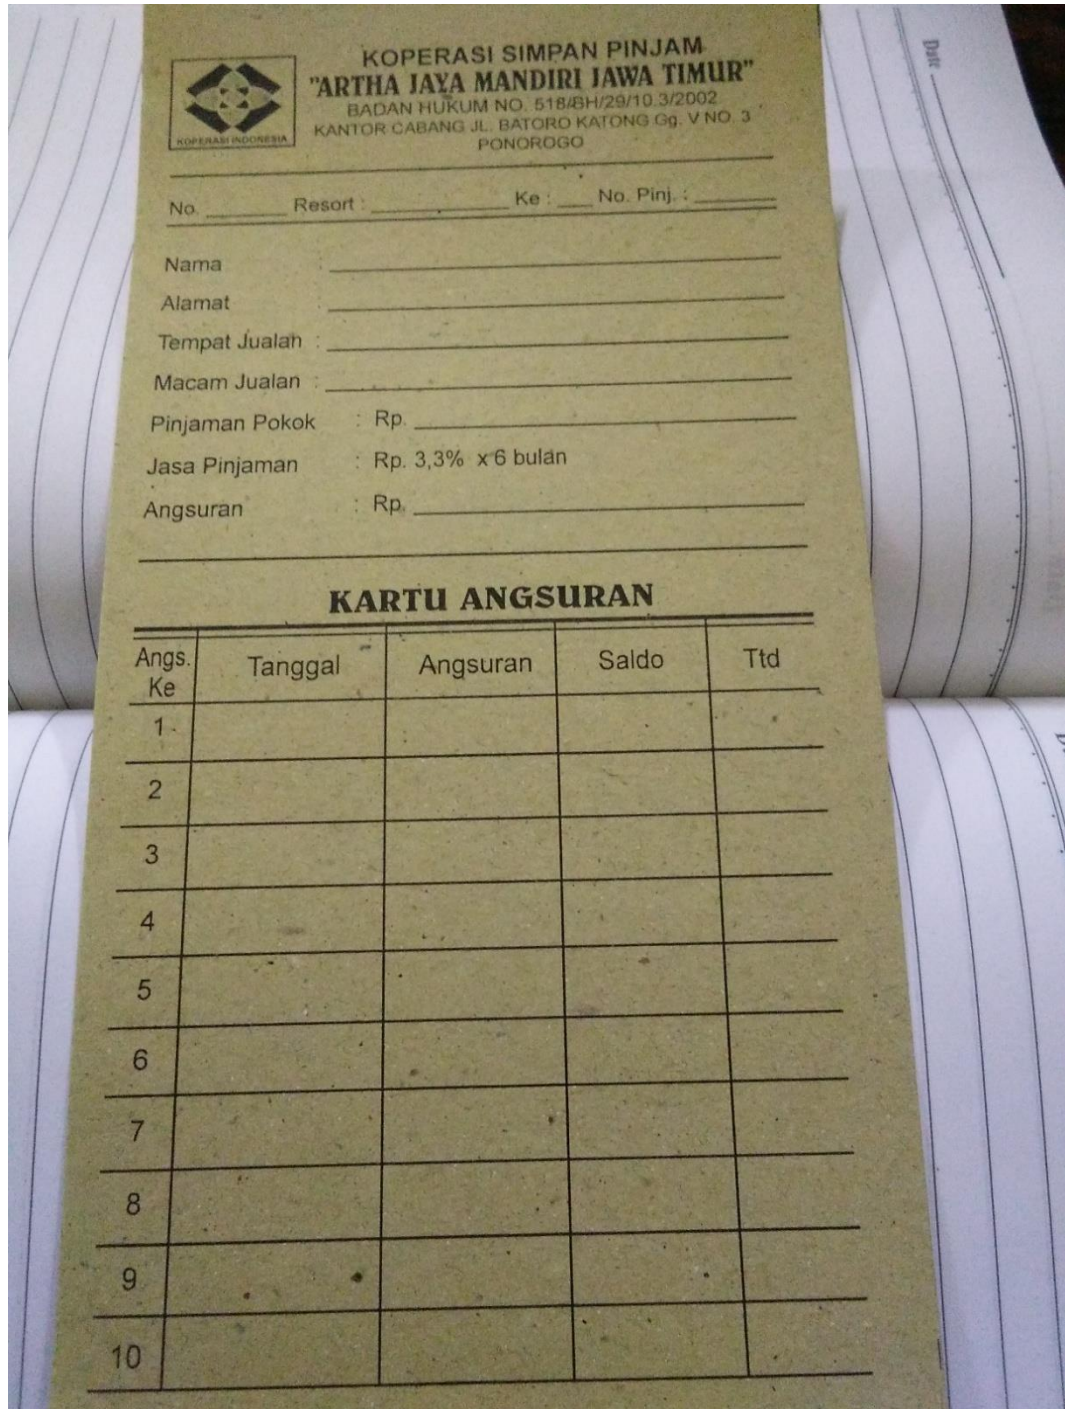 KOPERASI SIMPAN PINJAM
"ARTHA JAYA MANDIRI JAWA TIMUR"
BADAN HUKUM NO. 518/BH/29/10.3/2002
KANTOR CABANG JL. BATORO KATONG Gg. V NO. 3
PONOROGO
KOPERASI INDONESIA
No. Resort : Ke : No. Pinj. :
Nama :
Alamat :
Tempat Jualan :
Macam Jualan :
Pinjaman Pokok : Rp.
Jasa Pinjaman : Rp. 3,3% x 6 bulan
Angsuran : Rp.
KARTU ANGSURAN
Angs. Ke Tanggal Angsuran Saldo Ttd
1
2
3
4
5
6
7
8
9
10
Date